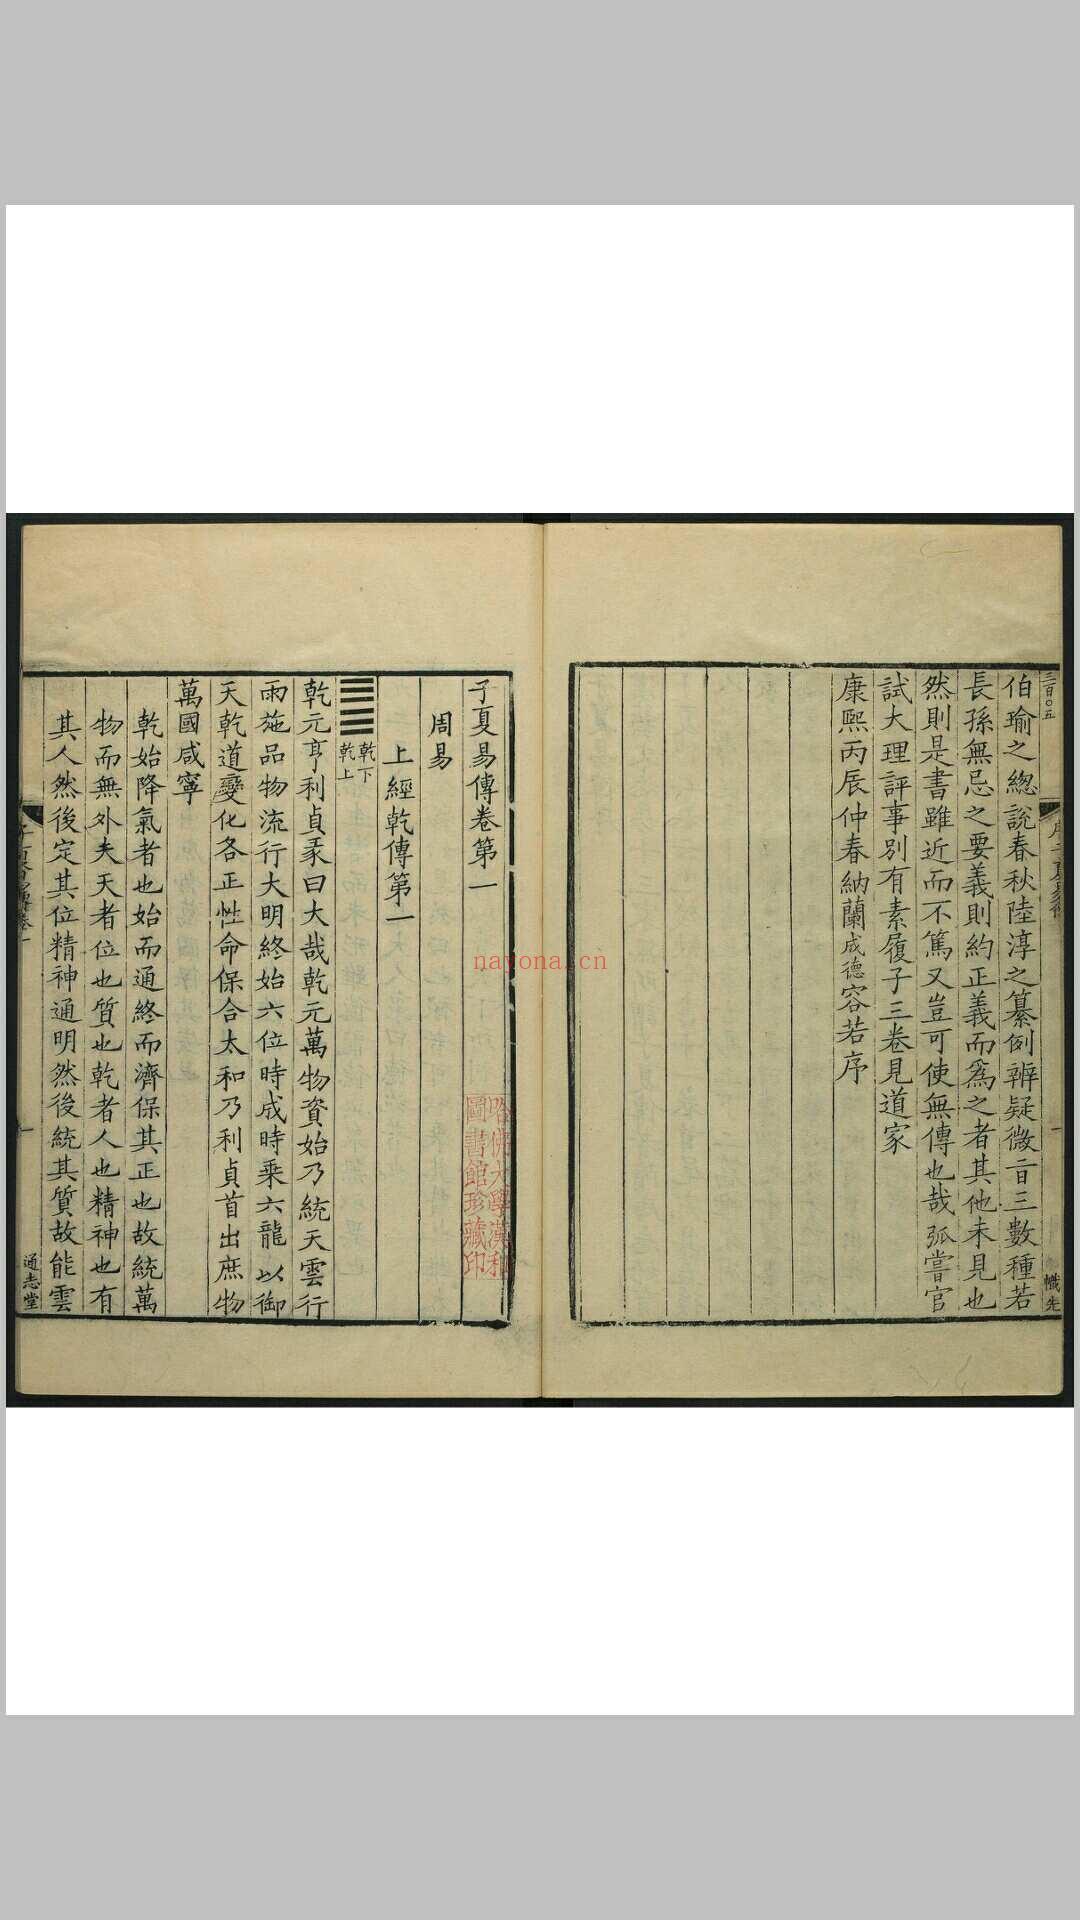 三百〇五
伯瑜之總說春秋陸淳之纂例辨疑微旨三數種若
長孫無忌之要義則約正義而為之者其他未見也
然則是書雖近而不篤又豈可使無傳也哉弧嘗官
試大理評事別有素履子三卷見道家
康熙丙辰仲春納蘭成德容若序
子夏易傳卷第一
周易
上經乾傳第一
乾下
乾上
乾元亨利貞彖曰大哉乾元萬物資始乃統天雲行
雨施品物流行大明終始六位時成時乘六龍以御
天乾道變化各正性命保合太和乃利貞首出庶物
萬國咸寧
乾始降氣者也始而通終而濟保其正也故統萬
物而無外夫天者位也質也乾者人也精神也有
其人然後定其位精神通明然後統其質故能雲
通志堂
哈佛大學漢和
圖書館珍藏印
nayona.cn